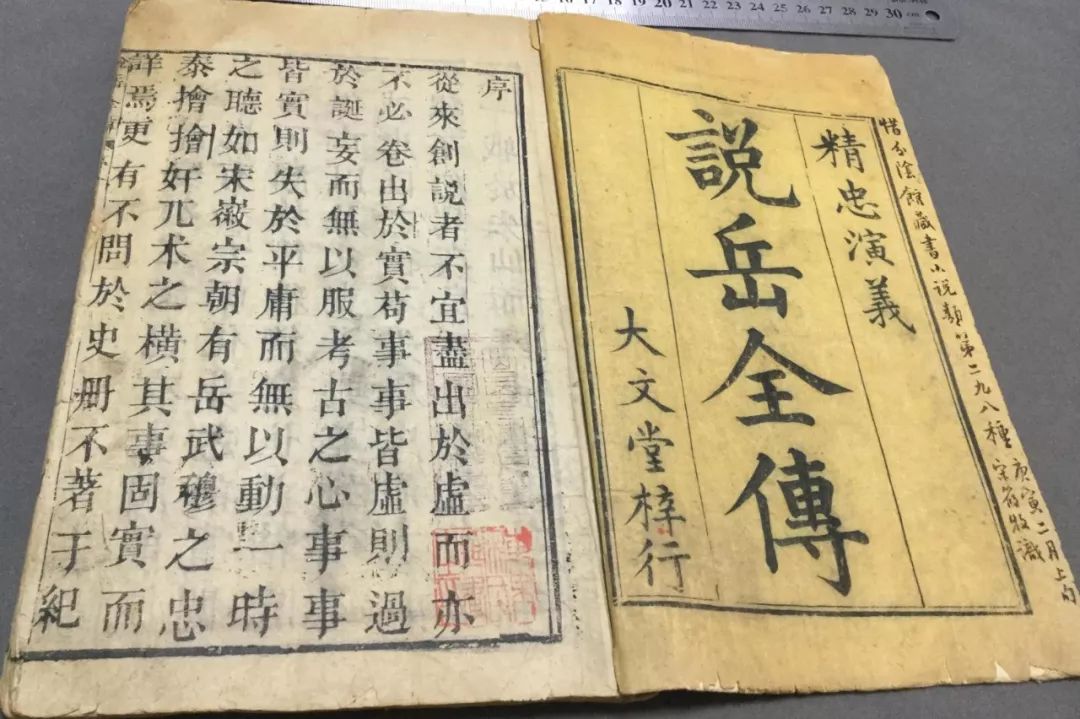 16 17 18 19 20 21 22 23 24 25 26 27 28 29 30 cm
惜分陰館藏書小說類第二九八種
庚寅二月上旬
精忠演義
說岳全傳
大文堂梓行
序
從來創說者不宜盡出於虛而亦
不必卷出於實苟事事皆虛則過
於誕妄而無以服考古之心事事
皆實則失於平庸而無以動一時
之聽如宋徽宗朝有岳武穆之忠
泰檜檜奸兀术之橫其事固實而
詳焉更有不問於史册不著于紀